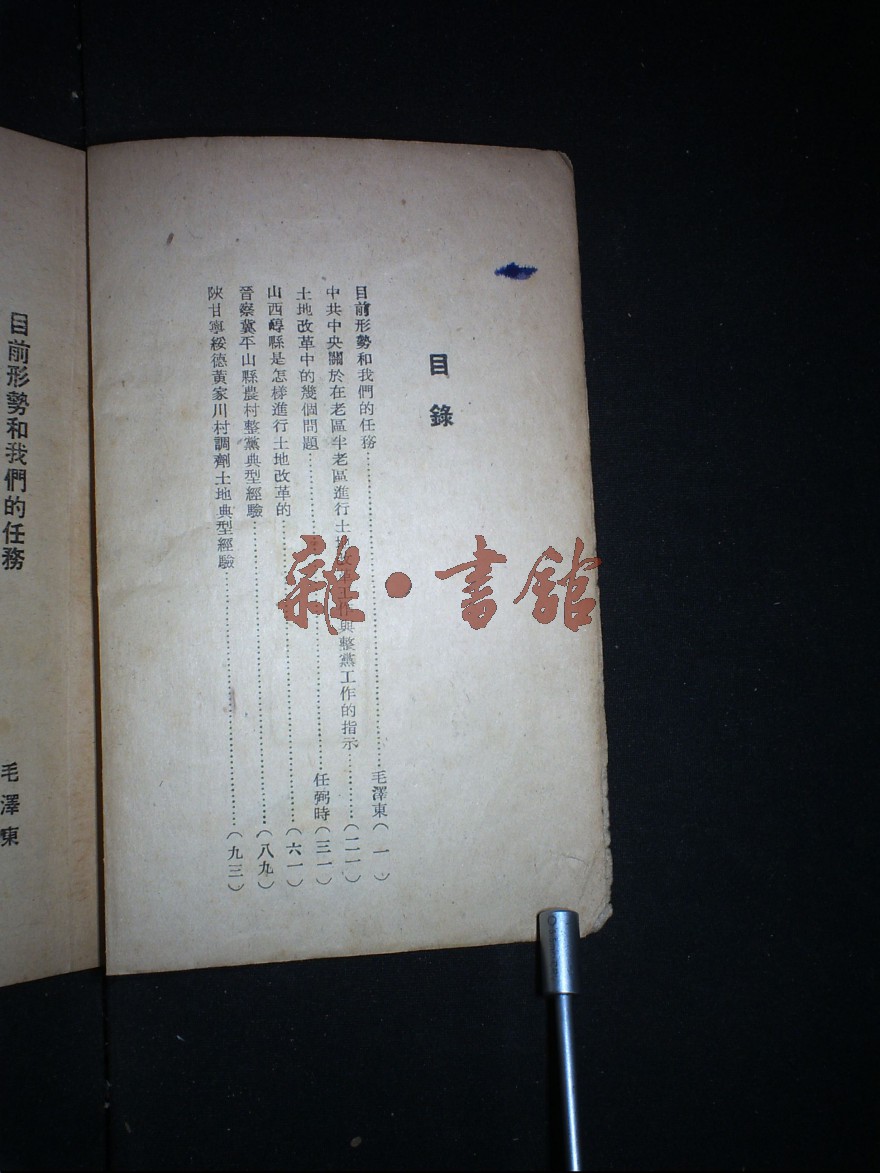 目錄
目前形勢和我們的任務……毛澤東（一）
中共中央關於在老區半老區進行土地改革工作與整黨工作的指示……（二一）
土地改革中的幾個問題……任弼時（三一）
山西崞縣是怎樣進行土地改革的……（六一）
晉察冀平山縣農村整黨典型經驗……（八九）
陝甘寧綏德黃家川村調劑土地典型經驗……（九三）
目前形勢和我們的任務
毛澤東
雜·書館